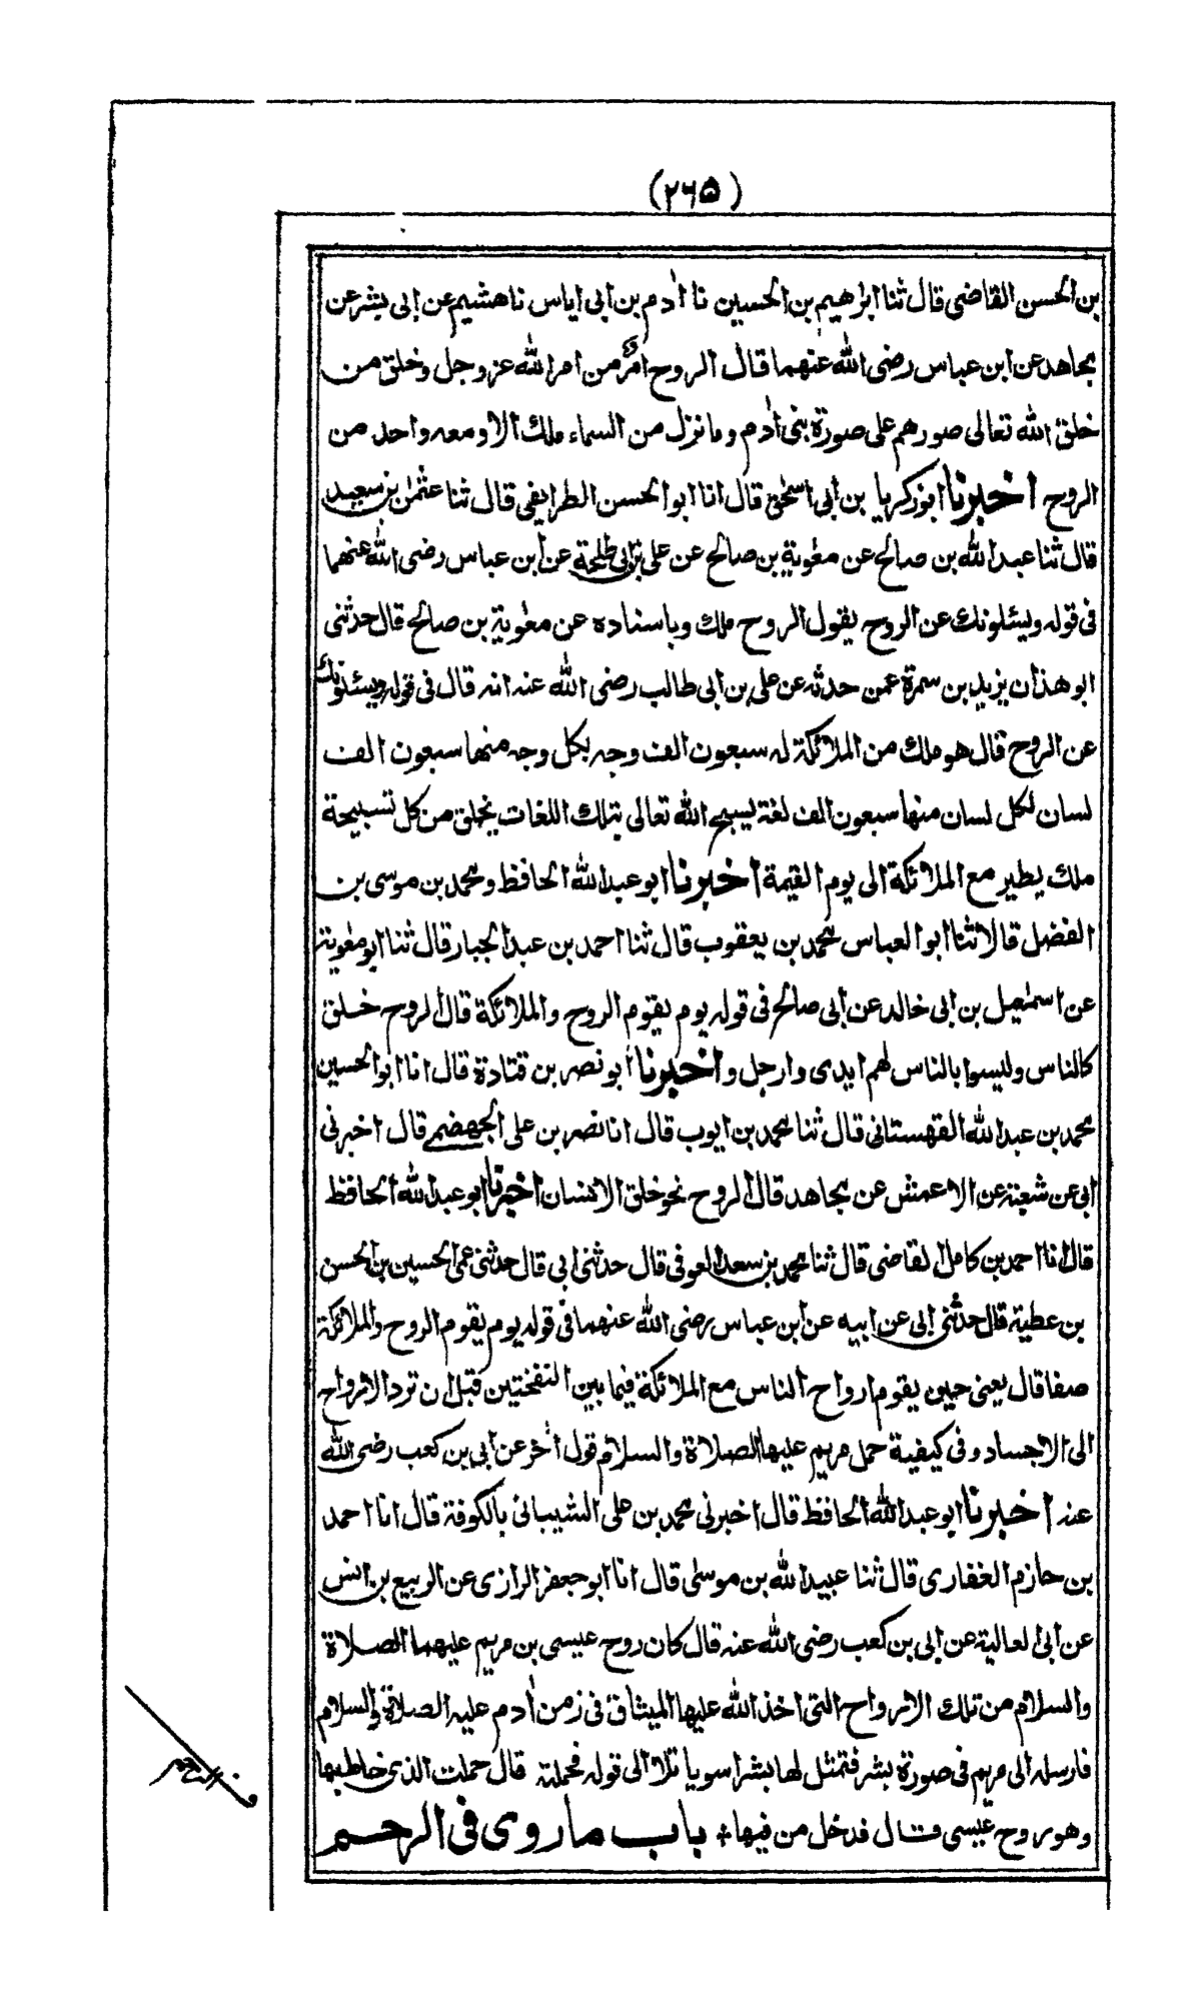 (۲۶۵)
بن الحسن القاضی قال ثنا ابراهیم بن الحسین نا اٰدم بن ابی ایاس نا هشیم عن ابی بشر عن
مجاهد عن ابن عباس رضی الله عنهما قال الروح امر من امر الله عز وجل وخلق من
خلق الله تعالی صورهم علی صورة بنی اٰدم وما نزل من السماء ملك الا ومعه واحد من
الروح اخبرنا ابوزکریا بن ابی اسحٰق قال انا ابو الحسن الطرایفی قال ثنا عثمٰن بن سعید
قال ثنا عبد الله بن صالح عن معٰویة بن صالح عن علی بن ابی طلحة عن ابن عباس رضی الله عنهما
فی قوله ویسئلونك عن الروح یقول الروح ملك وباسناده عن معٰویة بن صالح قال حدثنی
ابو هذان یزید بن سمرة عمن حدثه عن علی بن ابی طالب رضی الله عنه انه قال فی قوله ویسئلونك
عن الروح قال هو ملك من الملائكة له سبعون الف وجه بكل وجه منها سبعون الف
لسان لكل لسان منها سبعون الف لغة یسبح الله تعالی بتلك اللغات یخلق من كل تسبیحة
ملك یطیر مع الملائكة الی یوم القیمة اخبرنا ابو عبد الله الحافظ ومحمد بن موسی بن
الفضل قالا ثنا ابو العباس محمد بن یعقوب قال ثنا احمد بن عبد الجبار قال ثنا ابو معٰویة
عن اسمٰعیل بن ابی خالد عن ابی صالح فی قوله یوم یقوم الروح والملائكة قال الروح خلق
كالناس ولیسوا بالناس لهم ایدی وارجل واخبرنا ابو نصر بن قتادة قال انا ابو الحسین
محمد بن عبد الله القهستانی قال ثنا محمد بن ایوب قال انا نصر بن علی الجهضمی قال اخبرنی
ابی عن شعبة عن الاعمش عن مجاهد قال الروح نحو خلق الانسان اخبرنا ابو عبد الله الحافظ
قال انا احمد بن كامل القاضی قال ثنا محمد بن سعد العوفی قال حدثنی ابی قال حدثنی عمی الحسین بن الحسن
بن عطیة قال حدثنی ابی عن ابیه عن ابن عباس رضی الله عنهما فی قوله یوم یقوم الروح والملائكة
صفا قال یعنی حین یقوم ارواح الناس مع الملائكة فیما بین النفختین قبل ان ترد الارواح
الی الاجساد وفی كیفیة حمل مریم علیها الصلاة والسلام قول اٰخر عن ابی بن كعب رضی الله
عنه اخبرنا ابو عبد الله الحافظ قال اخبرنی محمد بن علی الشیبانی بالكوفة قال انا احمد
بن حازم الغفاری قال ثنا عبید الله بن موسٰی قال انا ابو جعفر الرازی عن الربیع بن انس
عن ابی العالیة عن ابی بن كعب رضی الله عنه قال كان روح عیسی بن مریم علیهما الصلاة
والسلام من تلك الارواح التی اخذ الله علیها المیثاق فی زمن اٰدم علیه الصلاة والسلام
فارسله الی مریم فی صورة بشر فتمثل لها بشرا سویا تلا الی قوله فحملته قال حملت الذی خاطبها
وهو روح عیسی قال فدخل من فیها باب ما روی فی الرحم